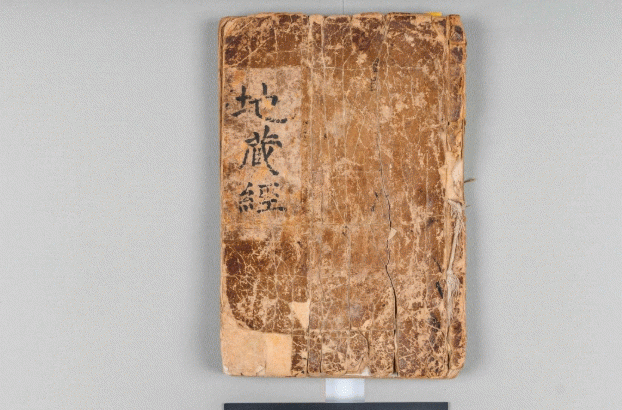 地藏經